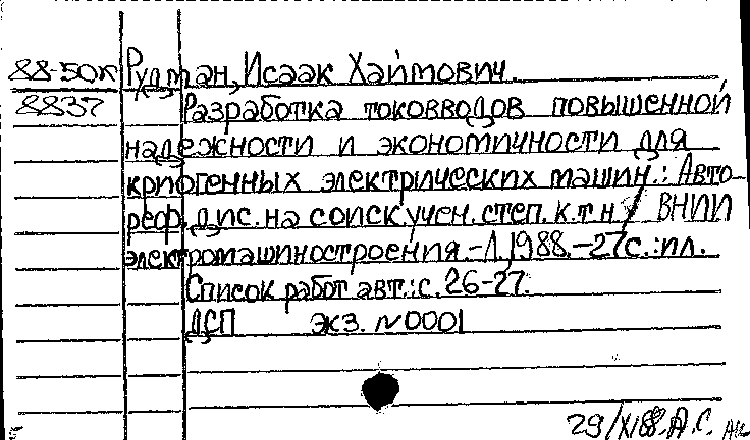 88-50к Рудман, Исаак Хаймович.
8837 Разработка токовводов повышенной
надежности и экономичности для
криогенных электрических машин.: Авто-
реф. дис. на соиск. учен. степ. к.т.н / ВНИИ
электромашиностроения.-Л.,1988.-27с.:ил.
Список работ авт.:с.26-27.
ДСП экз. N0001
29/XI88. А.С.